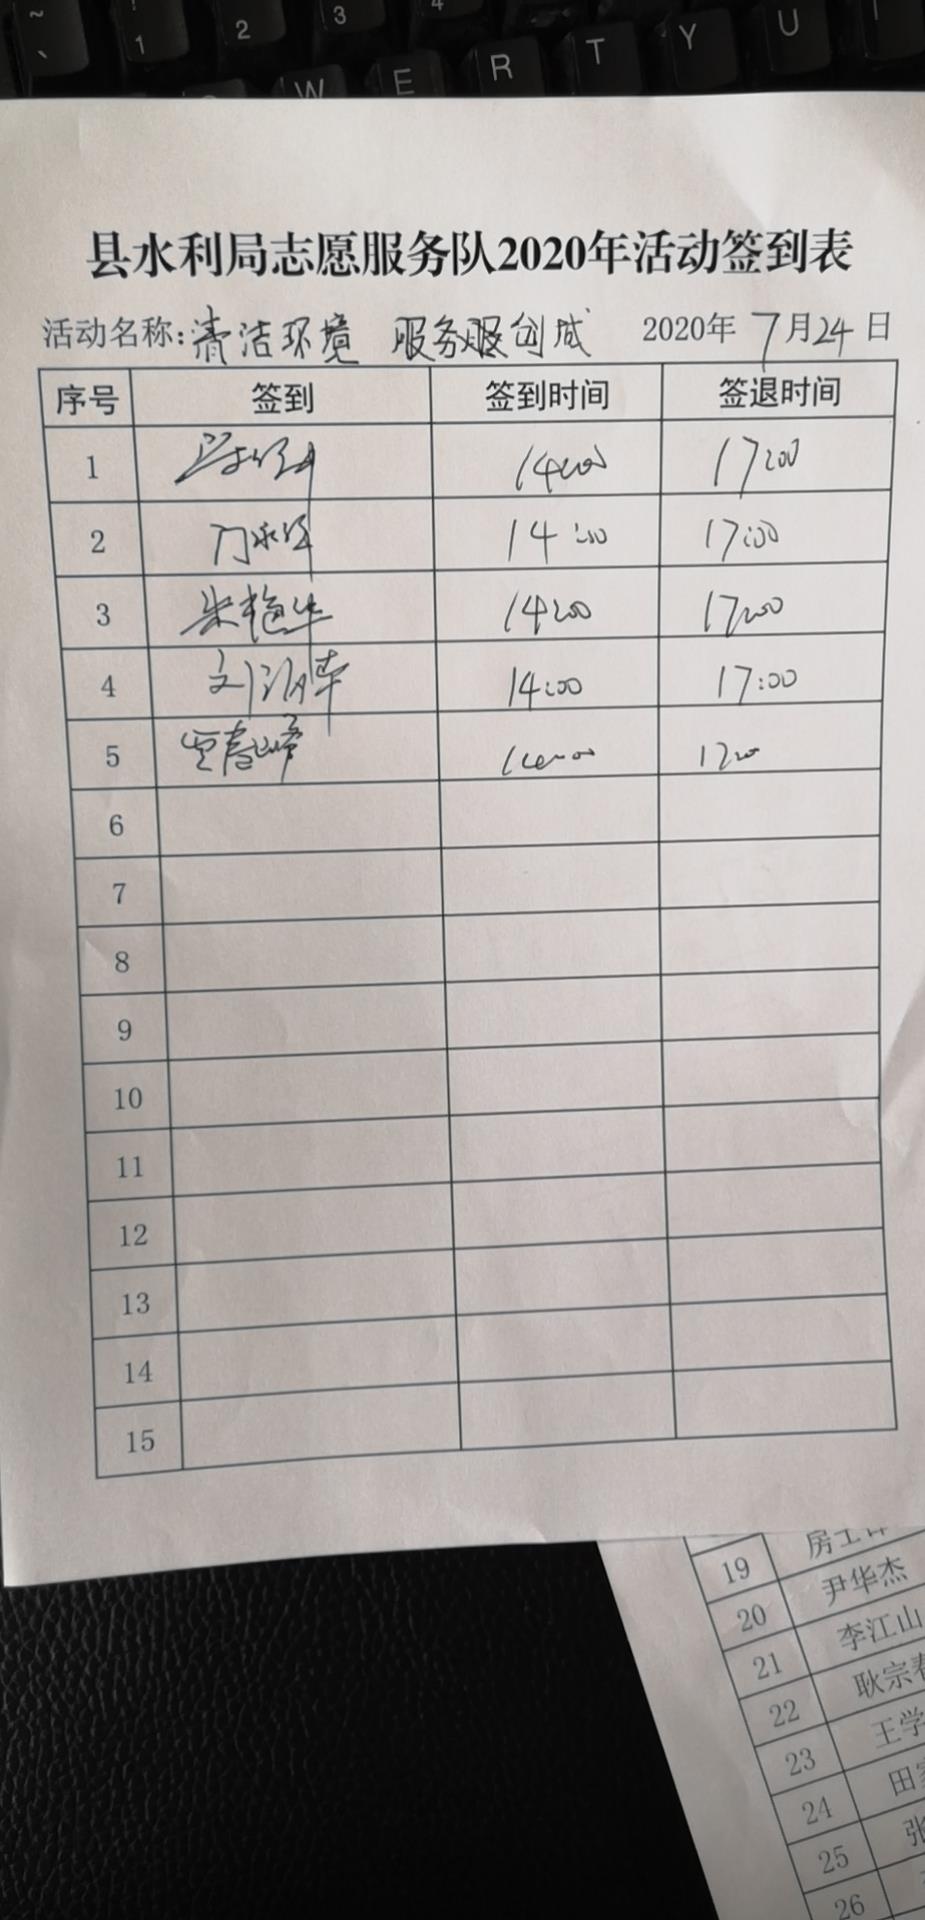 ~ ! 1 2 3 4
` W E R T Y U I
县水利局志愿服务队2020年活动签到表
活动名称:清洁环境 服务服创城 2020年7月24日
序号 签到 签到时间 签退时间
1 14:00 17:00
2 14:00 17:00
3 朱艳华 14:00 17:00
4 14:00 17:00
5 贾春峰 14:00 17:00
6
7
8
9
10
11
12
13
14
15
19
20 尹华杰
21 李江山
22 耿宗春
23 王学
24 田
25 张
26